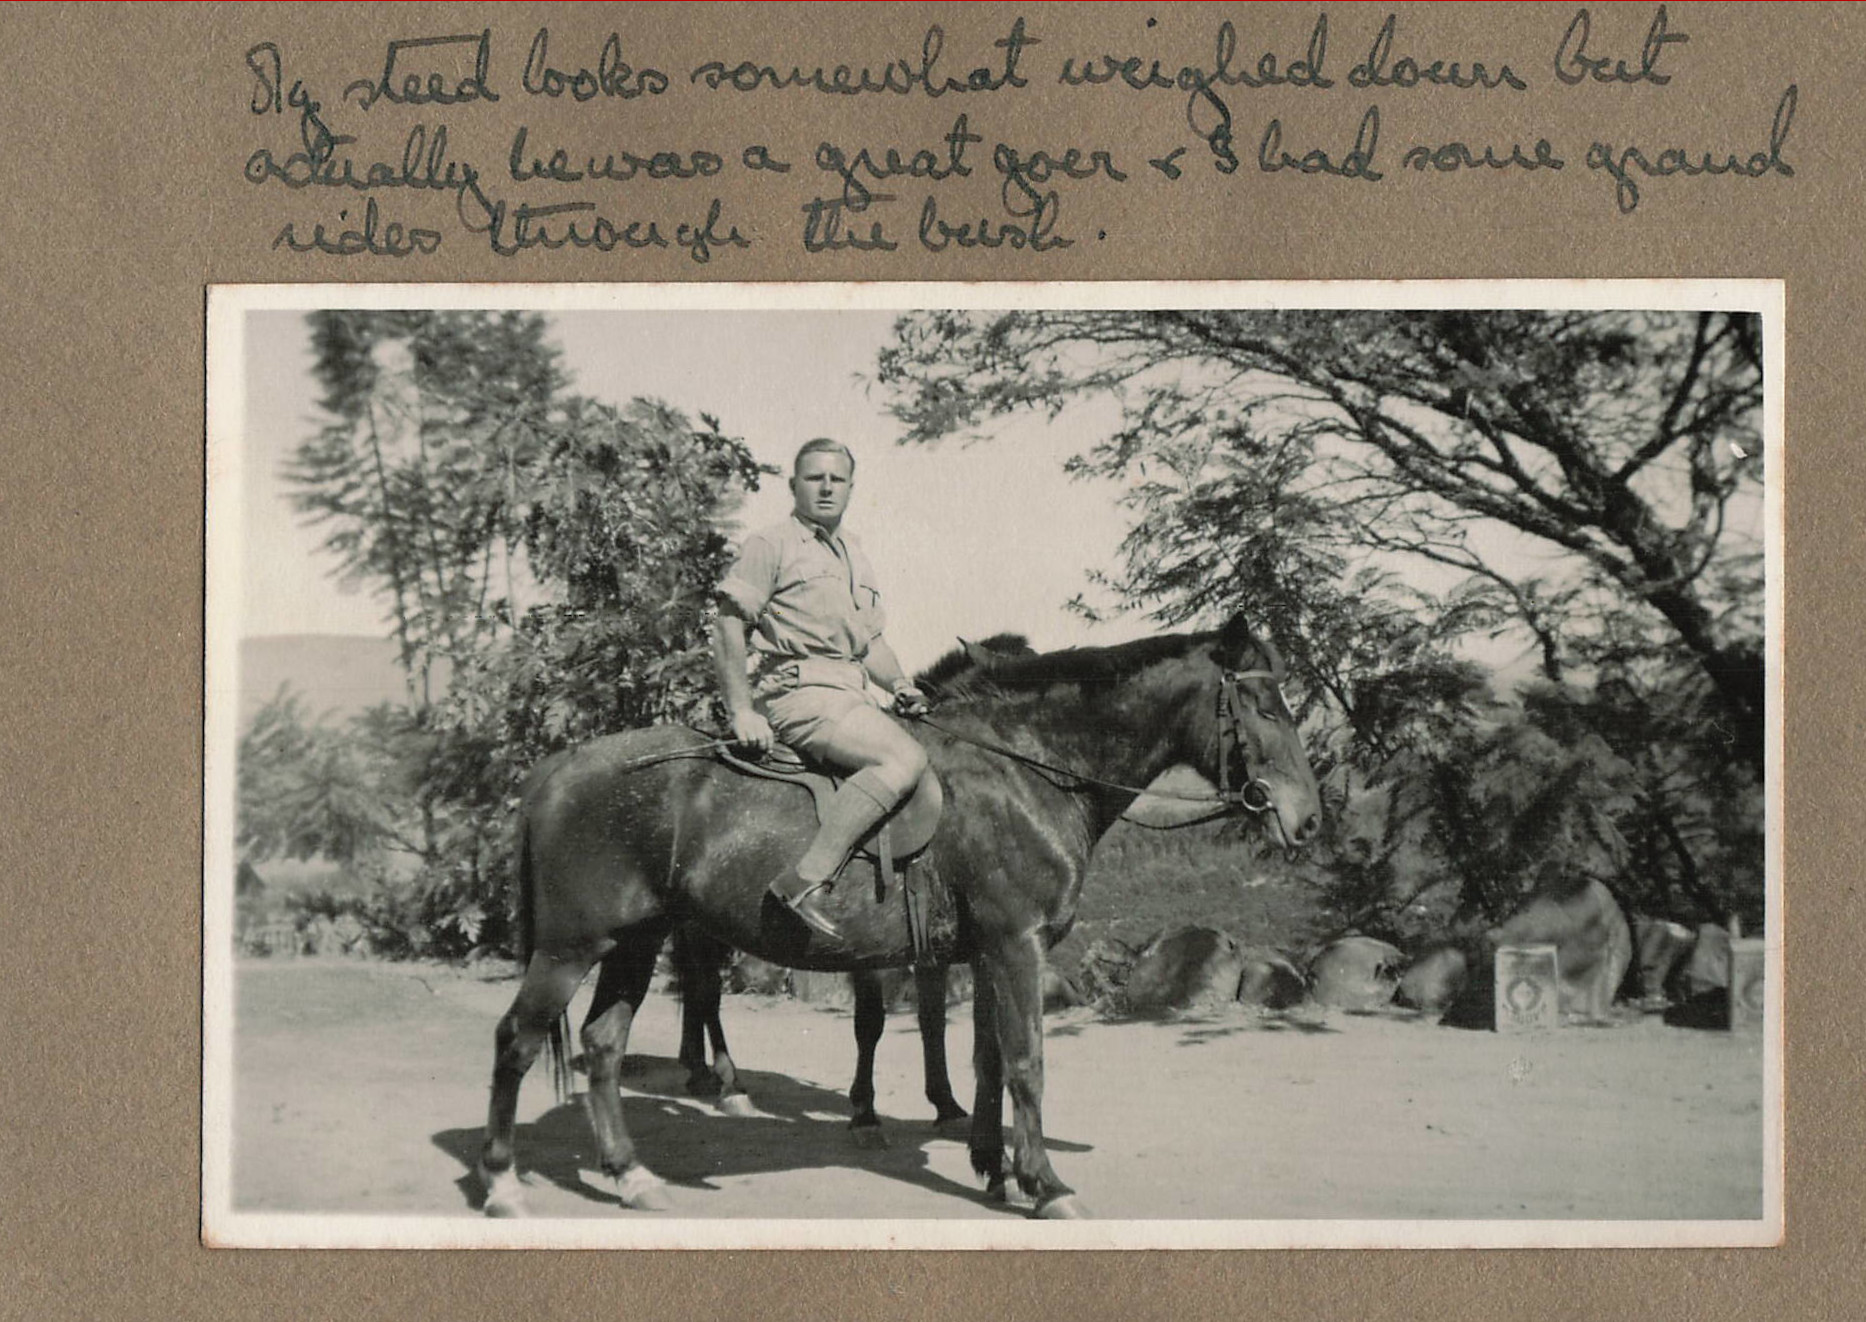 My steed looks somewhat weighed down but
actually he was a great goer & I had some grand
rides through the bush.